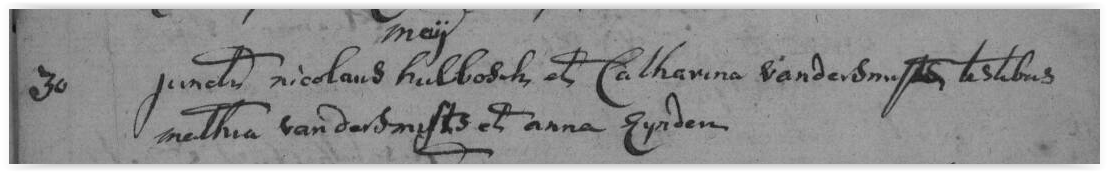 meij
30 juncti nicolaus hulbosch et Catharina vandersmissen testibus
mathia vandersmissen et anna Eyrden